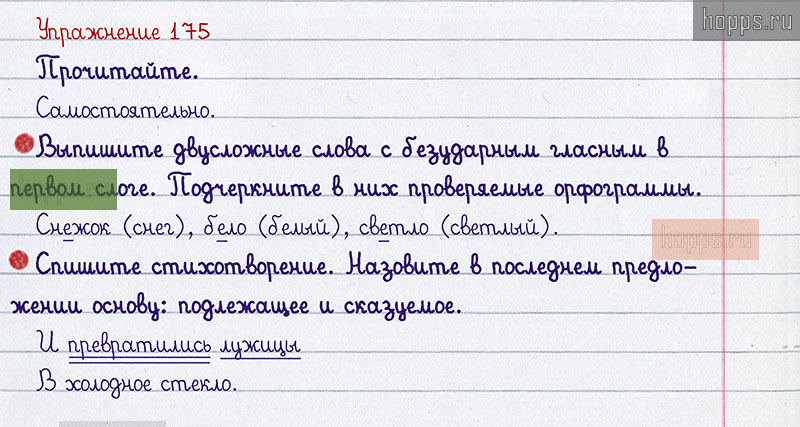 hopps.ru
Упражнение 175
Прочитайте.
Самостоятельно.
Выпишите двусложные слова с безударным гласным в
первом слоге. Подчеркните в них проверяемые орфограммы.
Снежок (снег), бело (белый), светло (светлый).
hopps.ru
Спишите стихотворение. Назовите в последнем предло-
жении основу: подлежащее и сказуемое.
И превратились лужицы
В холодное стекло.